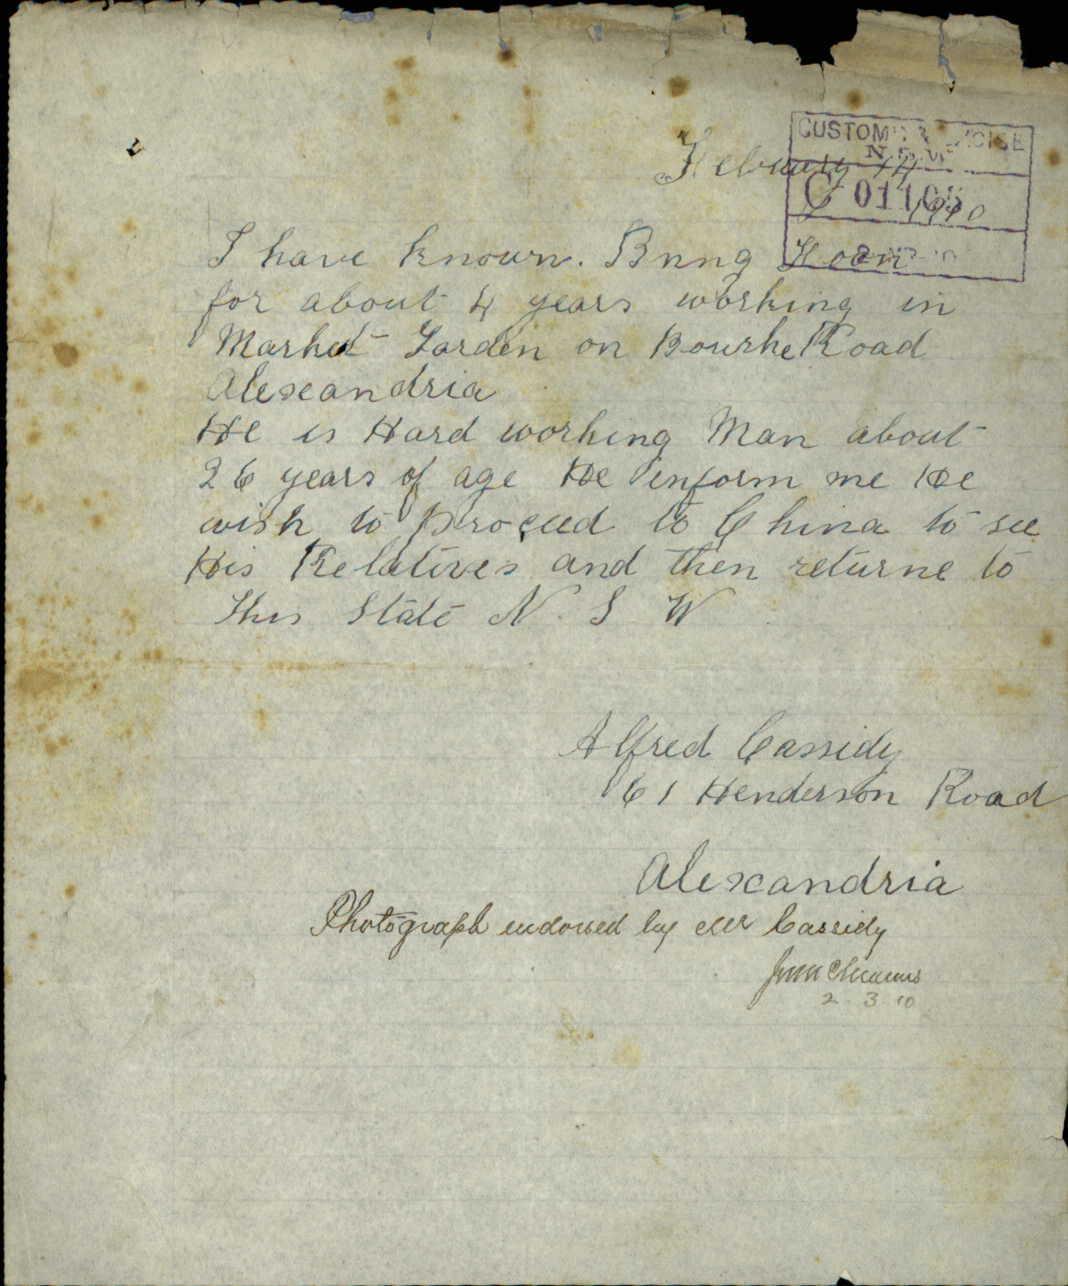 CUSTOMS & EXCISE
N.S.W.
C 01105
Febuary 14
1910
I have known. Bung Hoon
for about 4 years working in
Market Garden on Bourke Road
Alexandria
He is Hard working Man about
26 years of age He inform me He
wish to proceed to China to see
His Relatives and then returne to
This State N. S W
Alfred Cassidy
61 Henderson Road
Alexandria
Photograph endorsed by Mr Cassidy
2.3.10